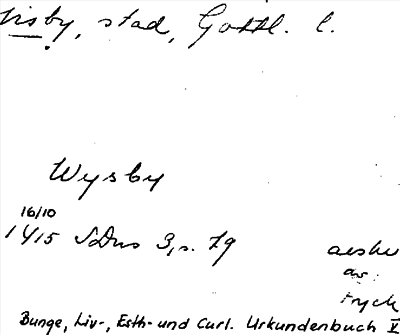 Visby, stad, Gottl. l.
Wysby
16/10
1415 SDns 3, s. 79
avskr
av
tryck
Bunge, Liv-, Esth- und Curl. Urkundenbuch V